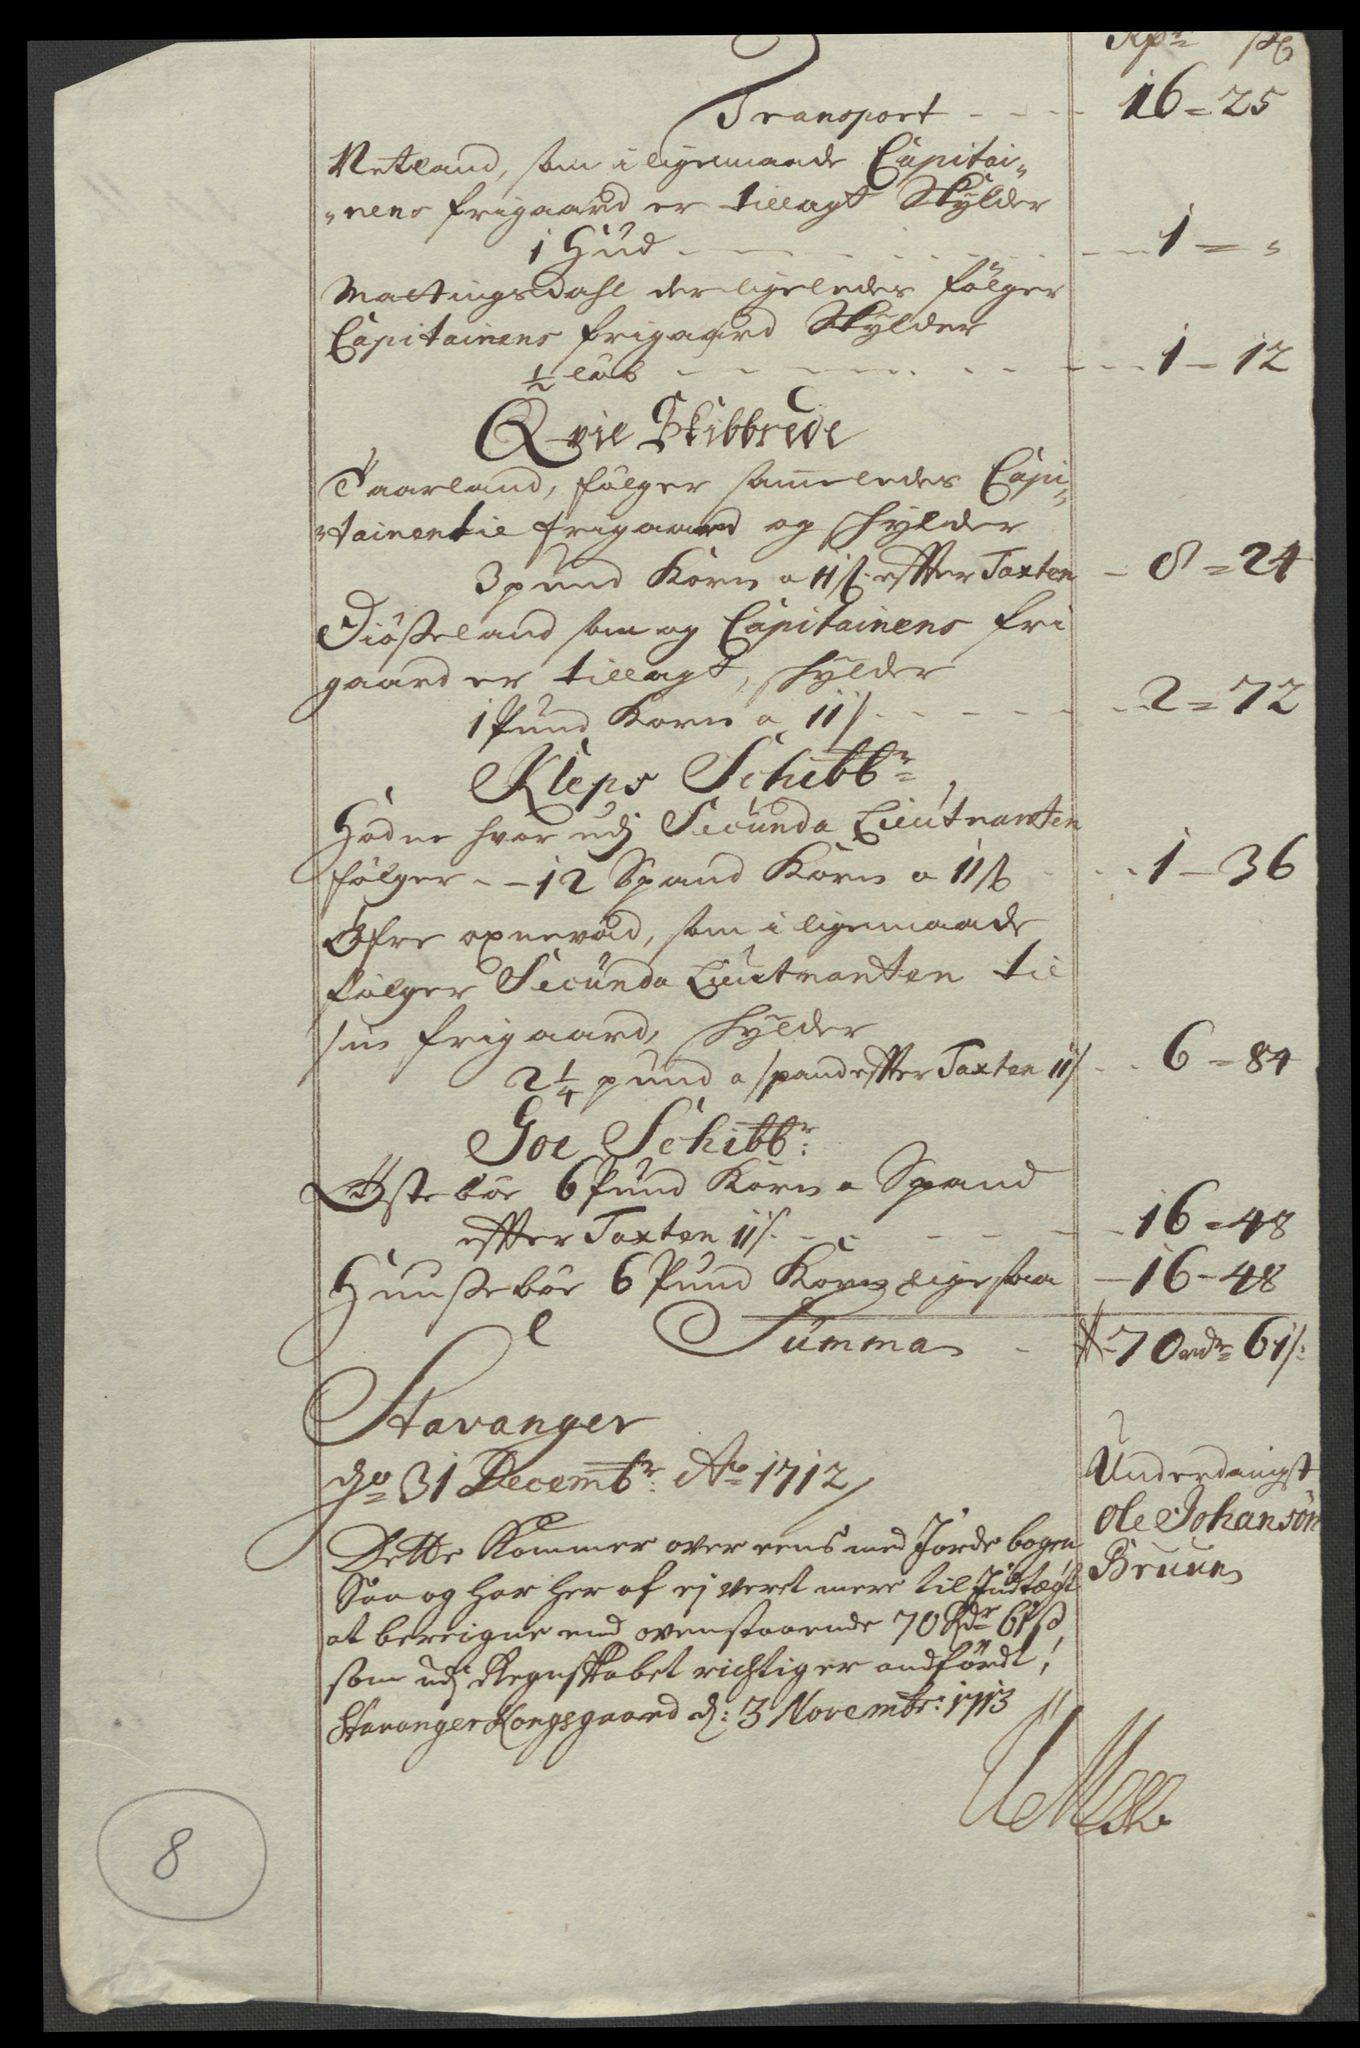 Rdr ß
Transport - - - 16 = 25
Netland, som i ligemaade Capitai„
„nens frigaard er tillagt Skylder
1 Hud - - - 1 = „
Mattingsdahl der ligeledes følger
Capitainens frigaard Skylder
½ løb - - - 1 - 12
Qvie Skibbrede
Taarland, følger sameledes Capi„
„tainen til frigaard og skylder
3 pund Korn a 11 ß efter Taxten - 8 = 24
Diøsseland som og Capitainens fri
gaard er tillagt, skylder
1 Pund Korn a 11 ß - - - 2 = 72
Kleps Schibbr
Hodne hvor udj Secunda Lieutnanten
følger - - 12 Spand Korn a 11 ß - - 1 - 36
Øfre oxnevad, som i ligemaade
følger Secunda Lieutnanten til
sin frigaard, skylder
2¼ pund a spand efter Taxten 11 ß - - 6 = 84
Goe Schibbr:
Østebøe 6 Pund Korn a Spand
efter Taxten 11 ß - - - 16 = 48
Huussebøe 6 Pund Korn ligesaa - 16 - 48
Summa - 70 rdr 61 ß:
Stavanger
dn 31 Decembr: Ao 1712
Underdanigst
Ole Johansøn
Bruun
Dette Kommer over eens med Jorde bogen
Saa og har her af ej veret mere til Indtægt
at bereigne end ovenstaaende 70 Rdr 61 ß,
som udj Regnskabet richtig er andførdt,
Stavanger Kongsgaard d: 3 Novembr: 1713
8